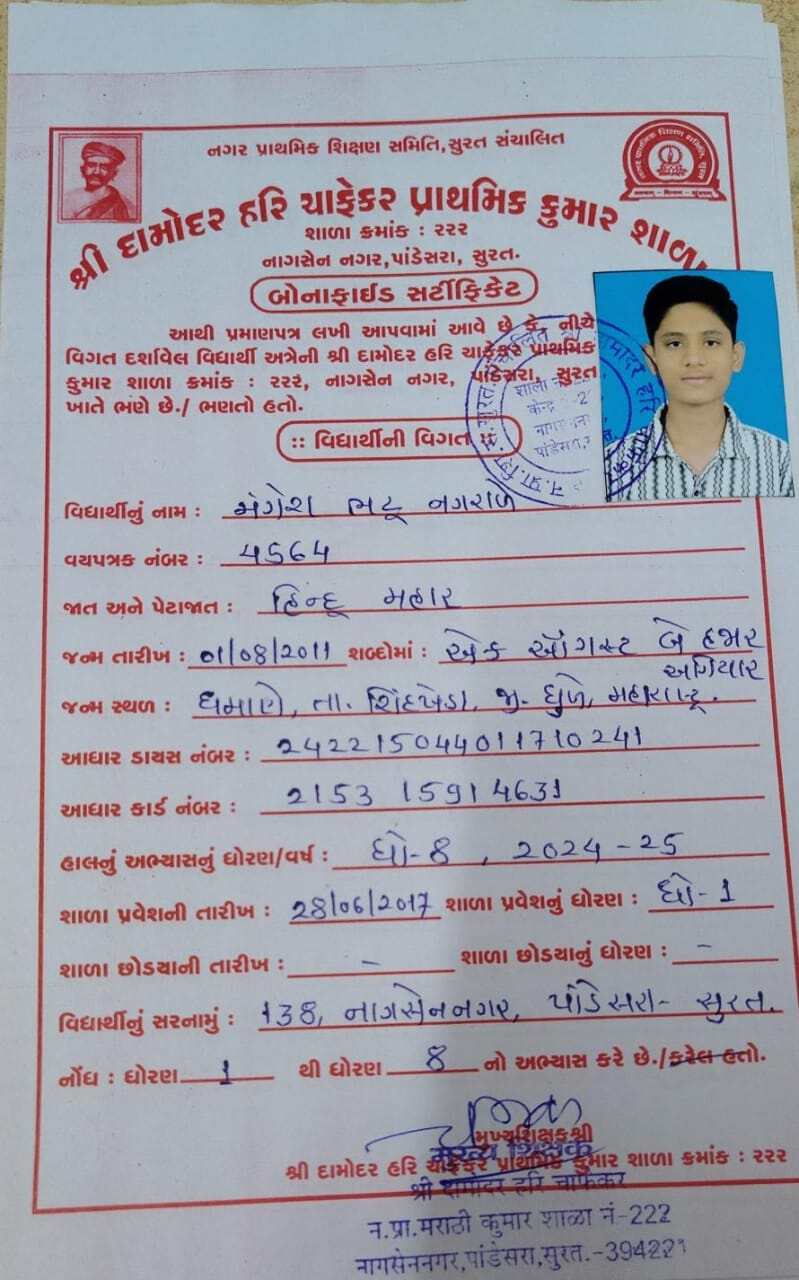 નગર પ્રાથમિક શિક્ષણ સમિતિ,સુરત સંચાલિત
શ્રી દામોદર હરિ ચાફેકર પ્રાથમિક કુમાર શાળા
શાળા ક્રમાંક : ૨૨૨
નાગસેન નગર,પાંડેસરા, સુરત.
બોનાફાઈડ સર્ટીફિકેટ
આથી પ્રમાણપત્ર લખી આપવામાં આવે છે કે, નીચે
વિગત દર્શાવેલ વિદ્યાર્થી અત્રેની શ્રી દામોદર હરિ ચાફેકર પ્રાથમિક
કુમાર શાળા ક્રમાંક : ૨૨૨, નાગસેન નગર, પાંડેસરા, સુરત
ખાતે ભણે છે./ ભણતો હતો.
:: વિદ્યાર્થીની વિગત ::
વિદ્યાર્થીનું નામ : મંગેશ ભટૂ નગરાળે
વયપત્રક નંબર : 4564
જાત અને પેટાજાત : હિન્દૂ મહાર
જન્મ તારીખ : 01/08/2011 શબ્દોમાં : એક ઓગસ્ટ બે હજાર
અગિયાર
જન્મ સ્થળ : ધમાણે, તા. શિંદખેડા, જી. ધુળે, મહારાષ્ટ્ર.
આધાર ડાયસ નંબર : 242215044011710241
આધાર કાર્ડ નંબર : 2153 1591 4631
હાલનું અભ્યાસનું ધોરણ/વર્ષ : ધો-8 , 2024-25
શાળા પ્રવેશની તારીખ : 28/06/2017 શાળા પ્રવેશનું ધોરણ : ધો-1
શાળા છોડયાની તારીખ : - શાળા છોડયાનું ધોરણ : -
વિદ્યાર્થીનું સરનામું : 138, નાગસેનનગર, પાંડેસરા- સુરત.
નોંધ : ધોરણ 1 થી ધોરણ 8 નો અભ્યાસ કરે છે./કરેલ હતો.
મુખ્યશિક્ષકશ્રી
मुख्य शिक्षक
શ્રી દામોદર હરિ ચાફેકર પ્રાથમિક કુમાર શાળા ક્રમાંક : ૨૨૨
श्री दामोदर हरि चाफेकर
न.प्रा.मराठी कुमार शाळा नं-222
नागसेननगर,पांडेसरा,सुरत.-394221